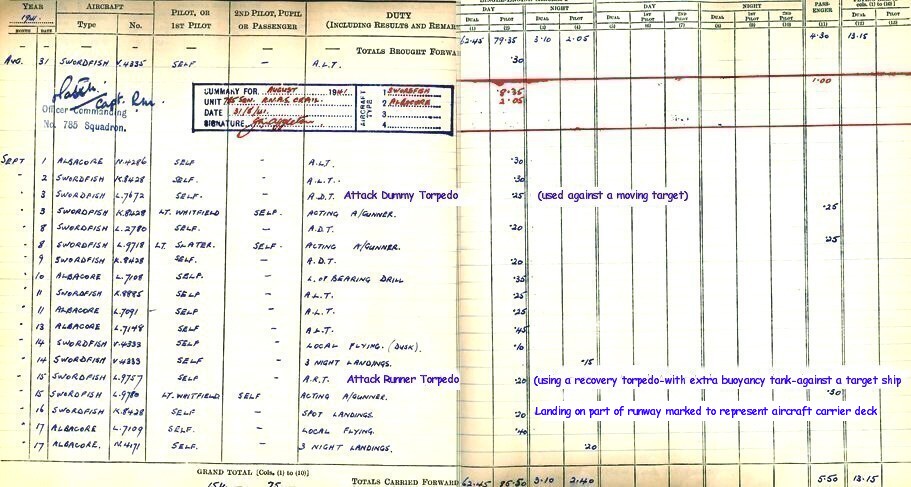 YEAR 1941. AIRCRAFT PILOT, OR 1ST PILOT 2ND PILOT, PUPIL OR PASSENGER DUTY (INCLUDING RESULTS AND REMAR DAY NIGHT DAY NIGHT PASS- ENGER cols. (1) to (10)
MONTH DATE Type No. DUAL PILOT DUAL PILOT DUAL 1ST PILOT 2ND PILOT DUAL 1ST PILOT 2ND PILOT DUAL PILOT
(1) (2) (3) (4) (5) (6) (7) (8) (9) (10) (11) (12) (13)
— — — — — TOTALS BROUGHT FORWA 62.45 79.35 3.10 2.05 4.30 13.15
AUG. 31 SWORDFISH V.4335 SELF — A.L.T. ·30
SUMMARY FOR AUGUST 1941. 1 SWORDFISH 8.35 1.00
UNIT 785 SQN. R.N.A.S. CRAIL. AIRCRAFT TYPE 2 ALBACORE 2.05
DATE 31/8/41 3
SIGNATURE 4
Capt. R.M.
Officer Commanding
No. 785 Squadron.
SEPT 1 ALBACORE N.4286 SELF — A.L.T. ·30
" 2 SWORDFISH K.8428 SELF. — A.L.T. ·30
" 3 SWORDFISH L.7672 SELF. — A.D.T. Attack Dummy Torpedo ·25 (used against a moving target)
" 3 SWORDFISH K.8428 LT. WHITFIELD SELF. ACTING A/GUNNER. ·25
" 8 SWORDFISH L.2780 SELF. — A.D.T. ·20
" 8 SWORDFISH L.9718 LT. SLATER. SELF. ACTING A/GUNNER. ·25
" 9 SWORDFISH K.8428 SELF. — A.D.T. ·20
" 10 ALBACORE L.7108 SELF. — L. OF BEARING DRILL ·35
" 11 SWORDFISH K.8885 SELF — A.L.T. ·25
" 11 ALBACORE L.7091 SELF — A.L.T. ·25
" 13 ALBACORE L.7148 SELF — A.L.T. ·45
" 14 SWORDFISH V.4333 SELF — LOCAL FLYING. (DUSK). ·10
" 14 SWORDFISH V.4333 SELF — 3 NIGHT LANDINGS. ·15
" 15 SWORDFISH L.9757 SELF — A.R.T. Attack Runner Torpedo ·20 (using a recovery torpedo-with extra buoyancy tank-against a target ship
" 15 SWORDFISH L.9780 LT. WHITFIELD SELF ACTING A/GUNNER. ·30
" 16 SWORDFISH K.8428 SELF — SPOT LANDINGS. ·20 Landing on part of runway marked to represent aircraft carrier deck
" 17 ALBACORE L.7109 SELF. — LOCAL FLYING. ·40
" 17 ALBACORE. N.4171 SELF. — 3 NIGHT LANDINGS. ·20
GRAND TOTAL [Cols. (1) to (10)]
TOTALS CARRIED FORWARD 62.45 85.50 3.10 2.40 5.50 13.15